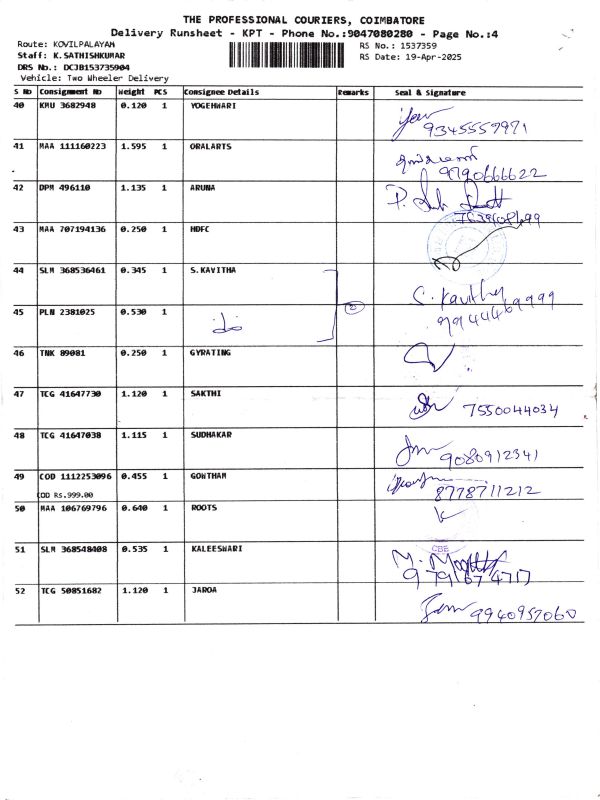 THE PROFESSIONAL COURIERS, COIMBATORE
Delivery Runsheet - KPT - Phone No.:9047080280 - Page No.:4
Route: KOVILPALAYAM
RS No.: 1537359
Staff: K.SATHISHKUMAR
RS Date: 19-Apr-2025
DRS No.: DCJB153735904
Vehicle: Two Wheeler Delivery
S No Consignment No Weight PCS Consignee Details Remarks Seal & Signature
40 KMU 3682948 0.120 1 YOGEHWARI
9345557971
41 MAA 111160223 1.595 1 ORALARTS
9790666622
42 DPM 496110 1.135 1 ARUNA
43 MAA 707194136 0.250 1 HDFC
44 SLM 368536461 0.345 1 S.KAVITHA
S. Kavitha
45 PLN 2381025 0.530 1
46 TNK 89081 0.250 1 GYRATING
47 TCG 41647730 1.120 1 SAKTHI
7550044034
48 TCG 41647038 1.115 1 SUDHAKAR
9080912341
49 COD 1112253096 0.455 1 GONTHAM
8778711212
COD Rs.999.00
50 MAA 106769796 0.640 1 ROOTS
51 SLM 368548408 0.535 1 KALEESWARI
CBE
9791674717
52 TCG 50851682 1.120 1 JAROA
9940957060